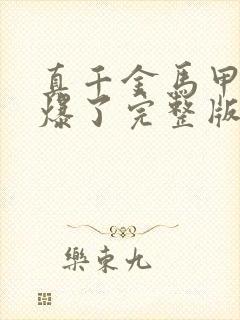 真千金馬甲
爆了完整版
樂東九